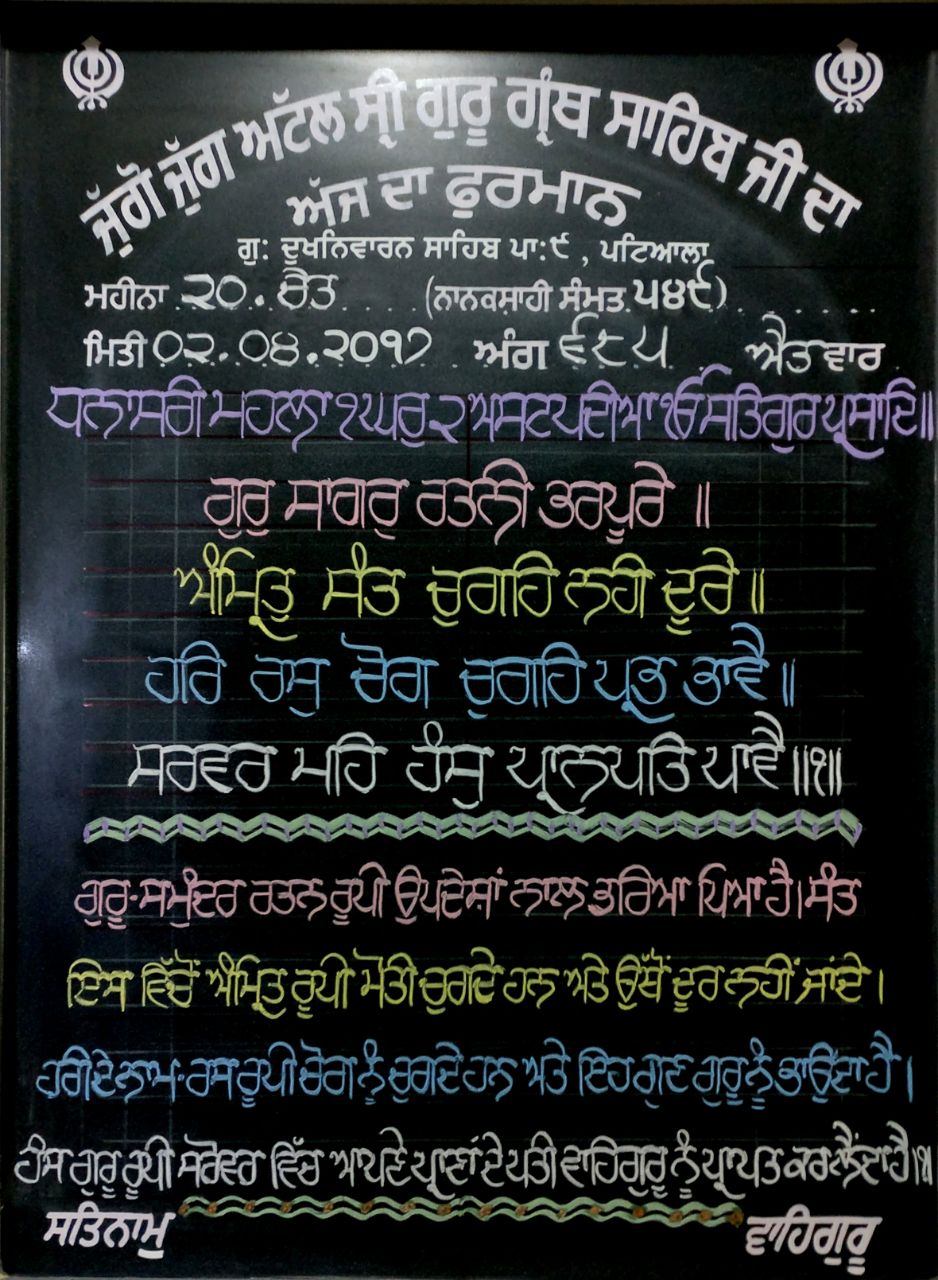 ਜੁੱਗੋ ਜੁੱਗ ਅਟੱਲ ਸ੍ਰੀ ਗੁਰੂ ਗ੍ਰੰਥ ਸਾਹਿਬ ਜੀ ਦਾ
ਅੱਜ ਦਾ ਫੁਰਮਾਨ
ਗੁ: ਦੁਖਨਿਵਾਰਨ ਸਾਹਿਬ ਪਾ:੯ , ਪਟਿਆਲਾ
ਮਹੀਨਾ ੨੦. ਚੇਤ (ਨਾਨਕਸ਼ਾਹੀ ਸੰਮਤ ੫੪੯)
ਮਿਤੀ ੦੨.੦੪.੨੦੧੭ ਅੰਗ ੬੮੫ ਐਤਵਾਰ
ਧਨਾਸਰੀ ਮਹਲਾ ੧ ਘਰੁ ੨ ਅਸਟਪਦੀਆ ੴ ਸਤਿਗੁਰ ਪ੍ਰਸਾਦਿ॥
ਗੁਰੁ ਸਾਗਰੁ ਰਤਨੀ ਭਰਪੂਰੇ ॥
ਅੰਮ੍ਰਿਤੁ ਸੰਤ ਚੁਗਹਿ ਨਹੀ ਦੂਰੇ ॥
ਹਰਿ ਰਸੁ ਚੋਗ ਚੁਗਹਿ ਪ੍ਰਭ ਭਾਵੈ॥
ਸਰਵਰ ਮਹਿ ਹੰਸੁ ਪ੍ਰਾਨਪਤਿ ਪਾਵੈ॥੧॥
ਗੁਰੂ-ਸਮੁੰਦਰ ਰਤਨ ਰੂਪੀ ਉਪਦੇਸ਼ਾਂ ਨਾਲ ਭਰਿਆ ਪਿਆ ਹੈ। ਸੰਤ
ਇਸ ਵਿੱਚੋਂ ਅੰਮ੍ਰਿਤ ਰੂਪੀ ਮੋਤੀ ਚੁਗਦੇ ਹਨ ਅਤੇ ਉੱਥੋਂ ਦੂਰ ਨਹੀਂ ਜਾਂਦੇ ।
ਹਰੀ ਦੇ ਨਾਮ-ਰਸ ਰੂਪੀ ਚੋਗ ਨੂੰ ਚੁਗਦੇ ਹਨ ਅਤੇ ਇਹ ਗੁਣ ਗੁਰੂ ਨੂੰ ਭਾਉਂਦਾ ਹੈ ।
ਹੰਸ ਗੁਰੂ ਰੂਪੀ ਸਰੋਵਰ ਵਿੱਚ ਆਪਣੇ ਪ੍ਰਾਣਾਂ ਦੇ ਪਤੀ ਵਾਹਿਗੁਰੂ ਨੂੰ ਪ੍ਰਾਪਤ ਕਰ ਲੈਂਦਾ ਹੈ।੧।
ਸਤਿਨਾਮੁ ਵਾਹਿਗੁਰੂ